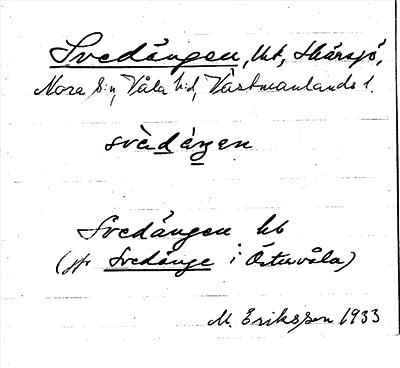 Svedängen, lht, Skärsjö,
Nora sn, Våla hd, Västmanlands l.
svèdäŋen
Svedängen hb
(jfr Svedänge i Östervåla)
M. Eriksson 1933